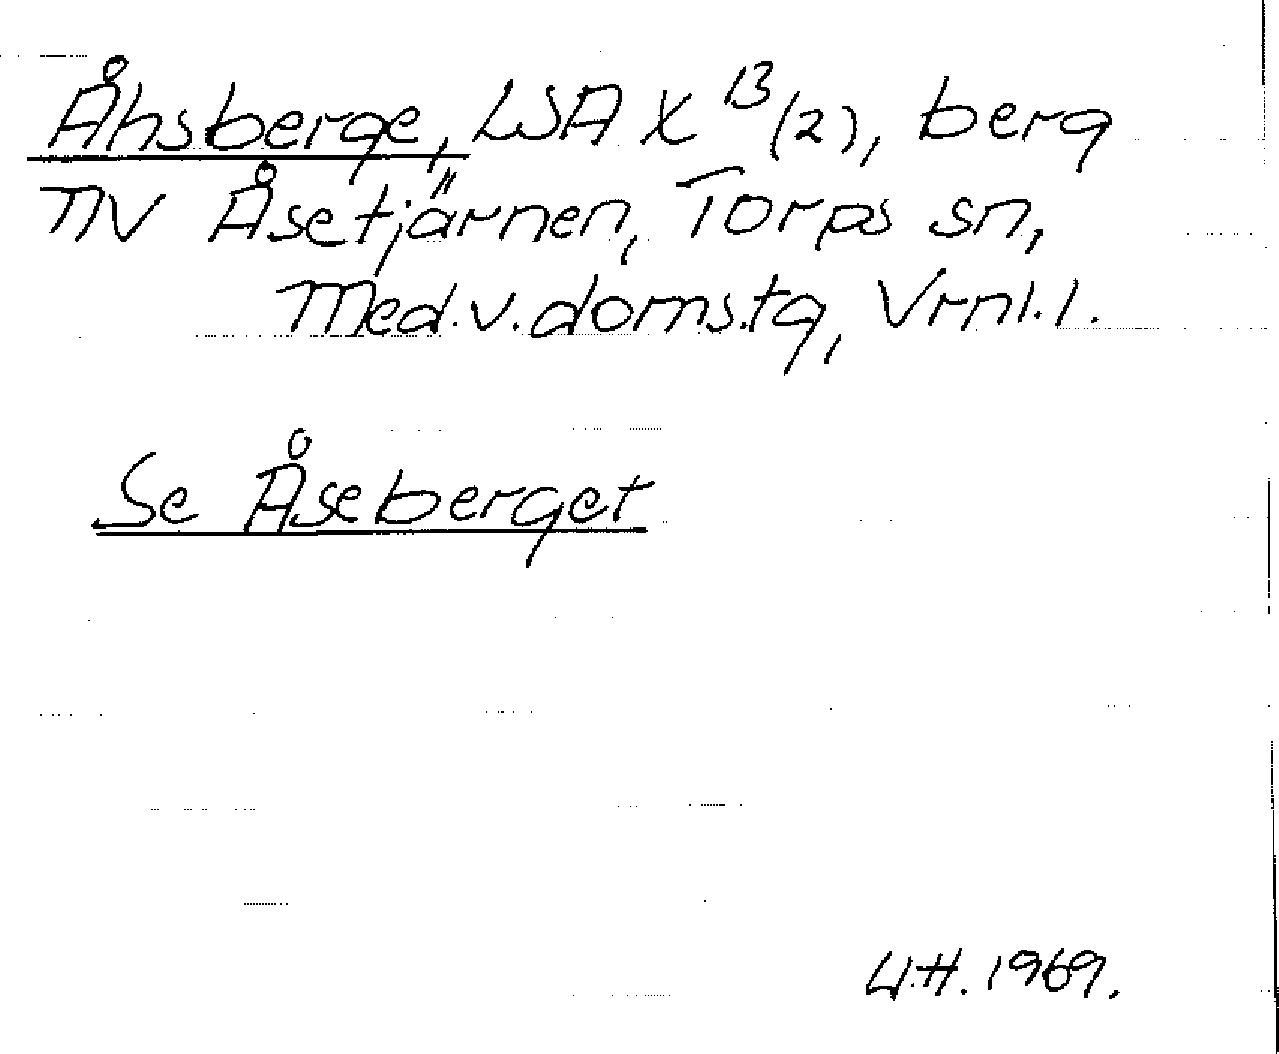 Åhsberge, LSA X 13/(2), berg
NV Åsetjärnen, Torps sn,
Med.v.doms.tg, Vrml.l.
Se Åseberget
U.H. 1969.